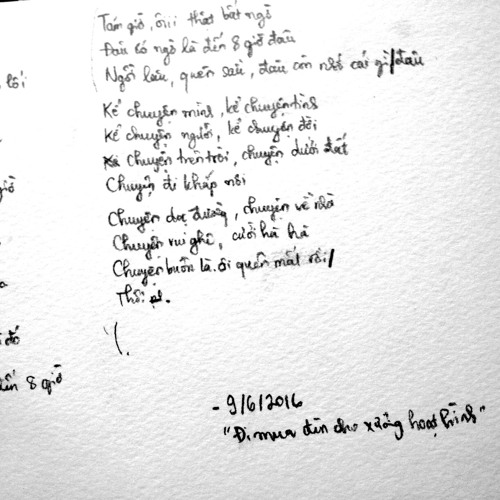 Tám giờ, ôiii thật bất ngờ
Đâu có ngờ là đến 8 giờ đâu
, lối
Ngồi lâu, quên sầu, đâu còn nhớ cái gì/đâu
Kể chuyện mình, kể chuyện tình
Kể chuyện người, kể chuyện đời
Chuyện trên trời, chuyện dưới đất
giờ
Chuyện đi khắp nơi
Chuyện dọc đường, chuyện về nhà
Chuyện vui ghê, cười hà hà
Chuyện buồn là.ôi quên mất rồi/
a
Thôi ạ.
đó
/.
đến 8 giờ
- 9/6/2016
"Đi mua đèn cho xưởng hoạt hình"